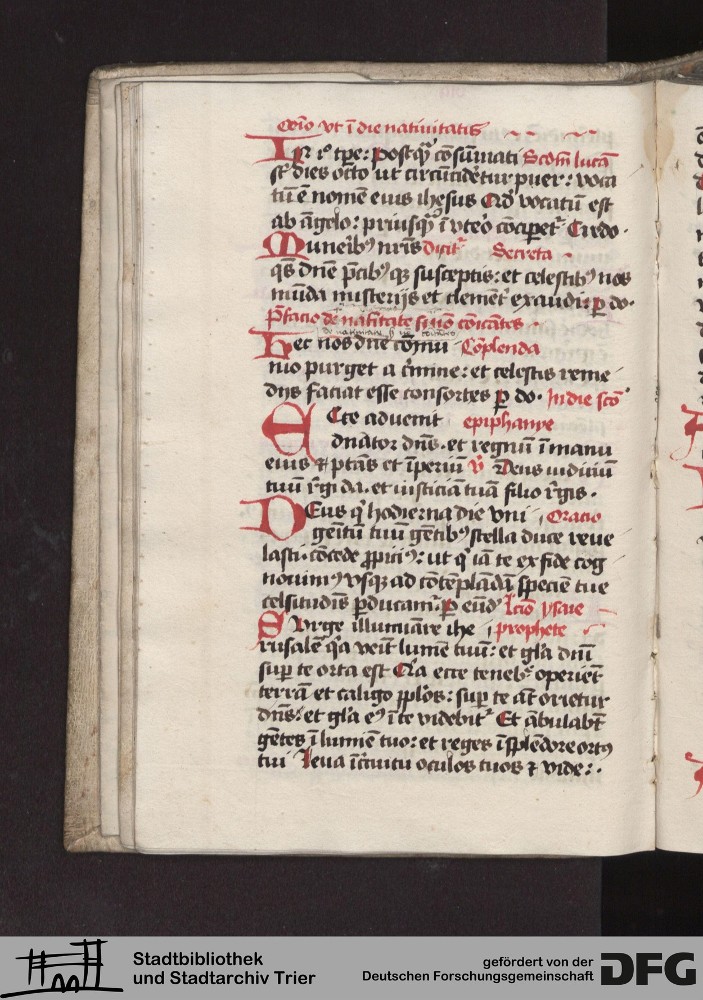 Com̄o vt ī die natiuitatis
IN r° tꝑe: Postq̄ȝ cōsūmati Scdm̄ lucā
st̄ dies octo ut circūcideretur puer: voca
tū ē nomē eius ihesus Qd̕ vocatū est
ab āgelo: priusq̄ȝ ī vtero cōciperet᷑ Credo.
Munerib⁹ nr̄is dicit᷑ Secreta
qs̄ dn̄e p̄cib⁹qȝ susceptis: et celestib⁹ nos
mūda misterijs et clemēt᷑ exaudi ꝑ do.
P̄facio de natītate sūo cōicātes
Hec nos dn̄e cōmu Cōplenda
nio purget a c̄mine: et celestis reme
dijs faciat esse consortes ꝑ do. In die scō
ECce aduenit epiphanye
dn̄ator dn̄s. et regnū ī manu
eius ⁊ ptās et īperiū v̄ Deus iudiciū
tuū r̄gi da. et iusticiā tuā filio r̄gis.
DEus q̕ hodierna die vni Oracio
genitū tuū gētib⁹ stella duce reue
lasti. cōcede ꝓpiti⁹: ut q̕ iā te ex fide cog
nouim⁹ vsqȝ ad cōtēplādā speciē tue
celsitudīs ꝑducam᷑. ꝑ eūd̕ lc̄io ysaie
SVrge illuminare ihe prophete
rusalē q̕a veīt lumē tuū: et gl̄a dn̄i
suꝑ te orta est Q̕a ecce tenebr̄ operiēt
terrā et caligo ppl̄os: suꝑ te āt orietur
dn̄s: et gl̄a ei⁹ ī te videbit᷑ Et ābulabt̄
gētes ī lumīe tuo: et reges ī splēdore ort⁹
tui Leua ī c̄cuitu oculos tuos ⁊ vide:.
Stadtbibliothek
und Stadtarchiv Trier
gefördert von der
Deutschen Forschungsgemeinschaft
DFG